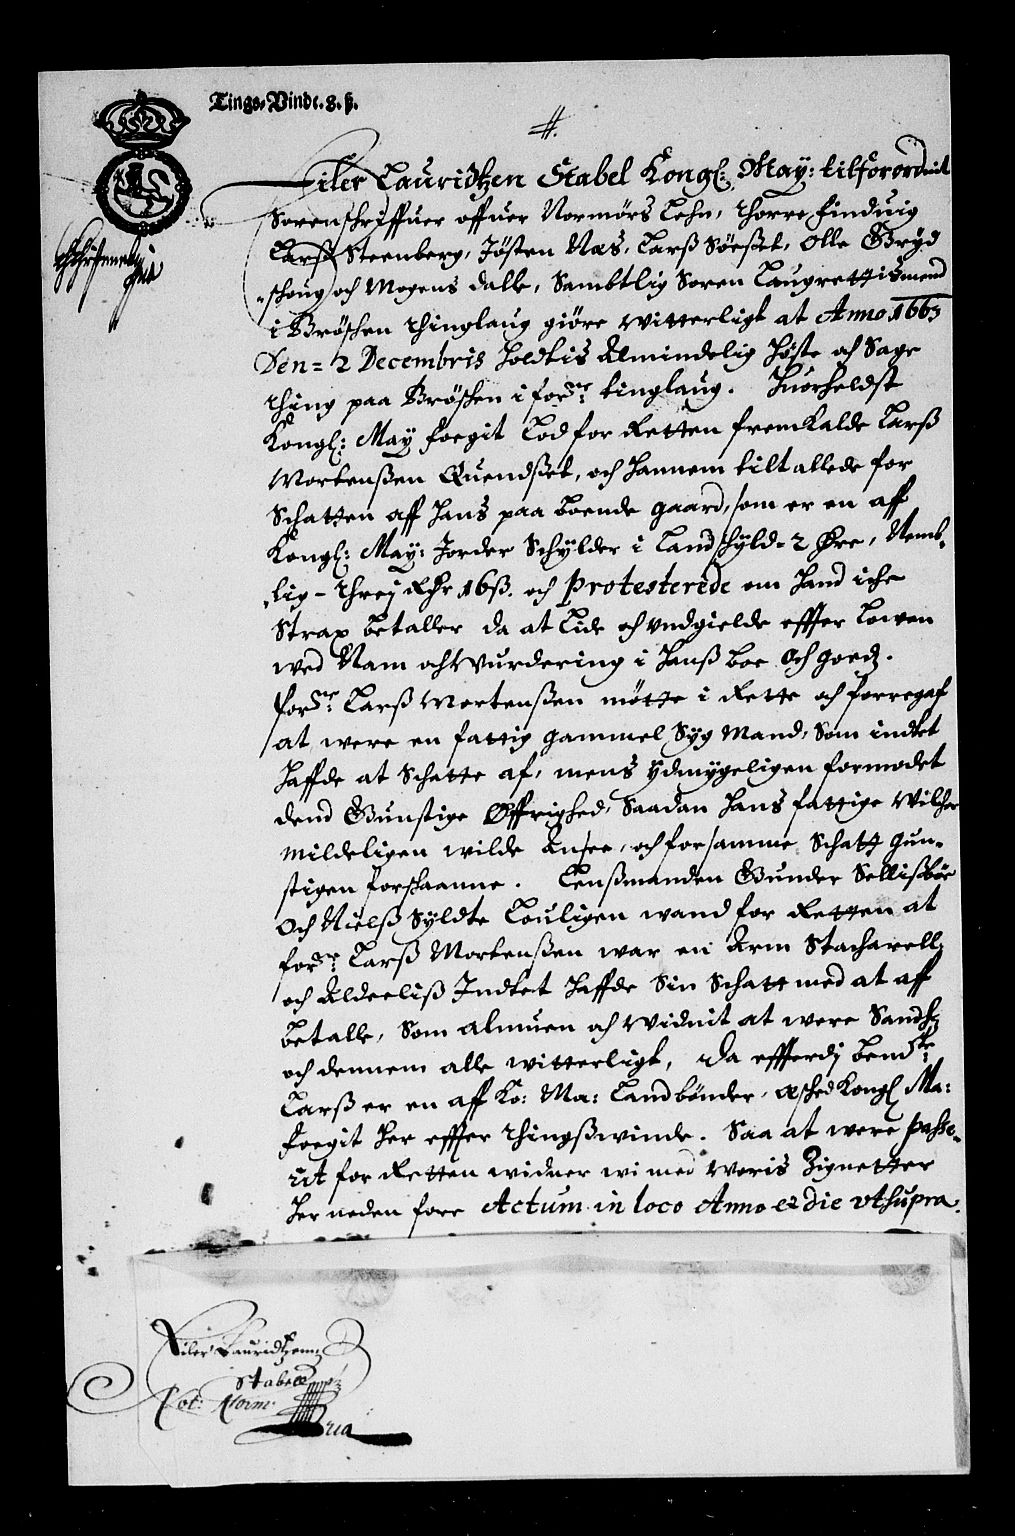 Tings-Vinde. 8. ß.
Eiler Lauridtzen Stabel Kongl: May: tilforordnit
Sorenschriffuer offuer Normørs Lehn, Thorre Finduig
Larß Steenberg, Jøsten Næs, Larß Sødset, Olle Gryd
schoug och Mogens Dalle, Sambtlig Soren Laugrettismend
i Brøschen Thinglaug giøre witterligt at Anno 1665
Den = 2 Decembris holdtis Almindelig Høste och Sage
Thing paa Brøschen i forne: tinglaug. Huorheldst
Kongl: May foegit Lod for Retten fremkalde Larß
Mortenßen Quendset, och hannem tiltallede for
Schatten aff hans paa boende gaard, som er en aff
Kongl: May: Jorder Schylder i Landschyld = 2 Øre, Nemb-
lig - Threj Rdr 16ß. och Protesterede om hand iche
Strax betaller da at Lide och undgielde effter Lowen
wed Nam och Wurdering i hanß boe och goedz.
forne: Larß Mortenßen møtte i Rette och forregaf
at were en fattig gammel Syg Mand, Som indtet
haffde at Schatte af, mens ydmygeligen formodet
dend Gunstige Øffrighed, Saadan hans fattige Wilchor
mildeligen wilde Ansee, och for samme Schatt gun-
stigen forschaanne. Lenßmanden Gunder Sellisbøe
Och Nielß Syldte Louligen wand for Retten at
forne: Larß Mortenßen war en Arm Stacharell
och Aldeeliß Indtet haffde Sin Schatt med at aff
betalle, Som almuen och widnit at were Sandt
och dennem alle witterligt, da effterdj bemte:
Larß er en aff Ko: Ma: Landbønder, Æsched Kongl Ma:
foegit her effter Thingßwinde. Saa at were passe-
rit for Retten widner wi med woris Zignetter
her neden fore Actum in loco Anno et die ut supra.
Eiler Lauridtzenn
Stabell
Not: Norm: